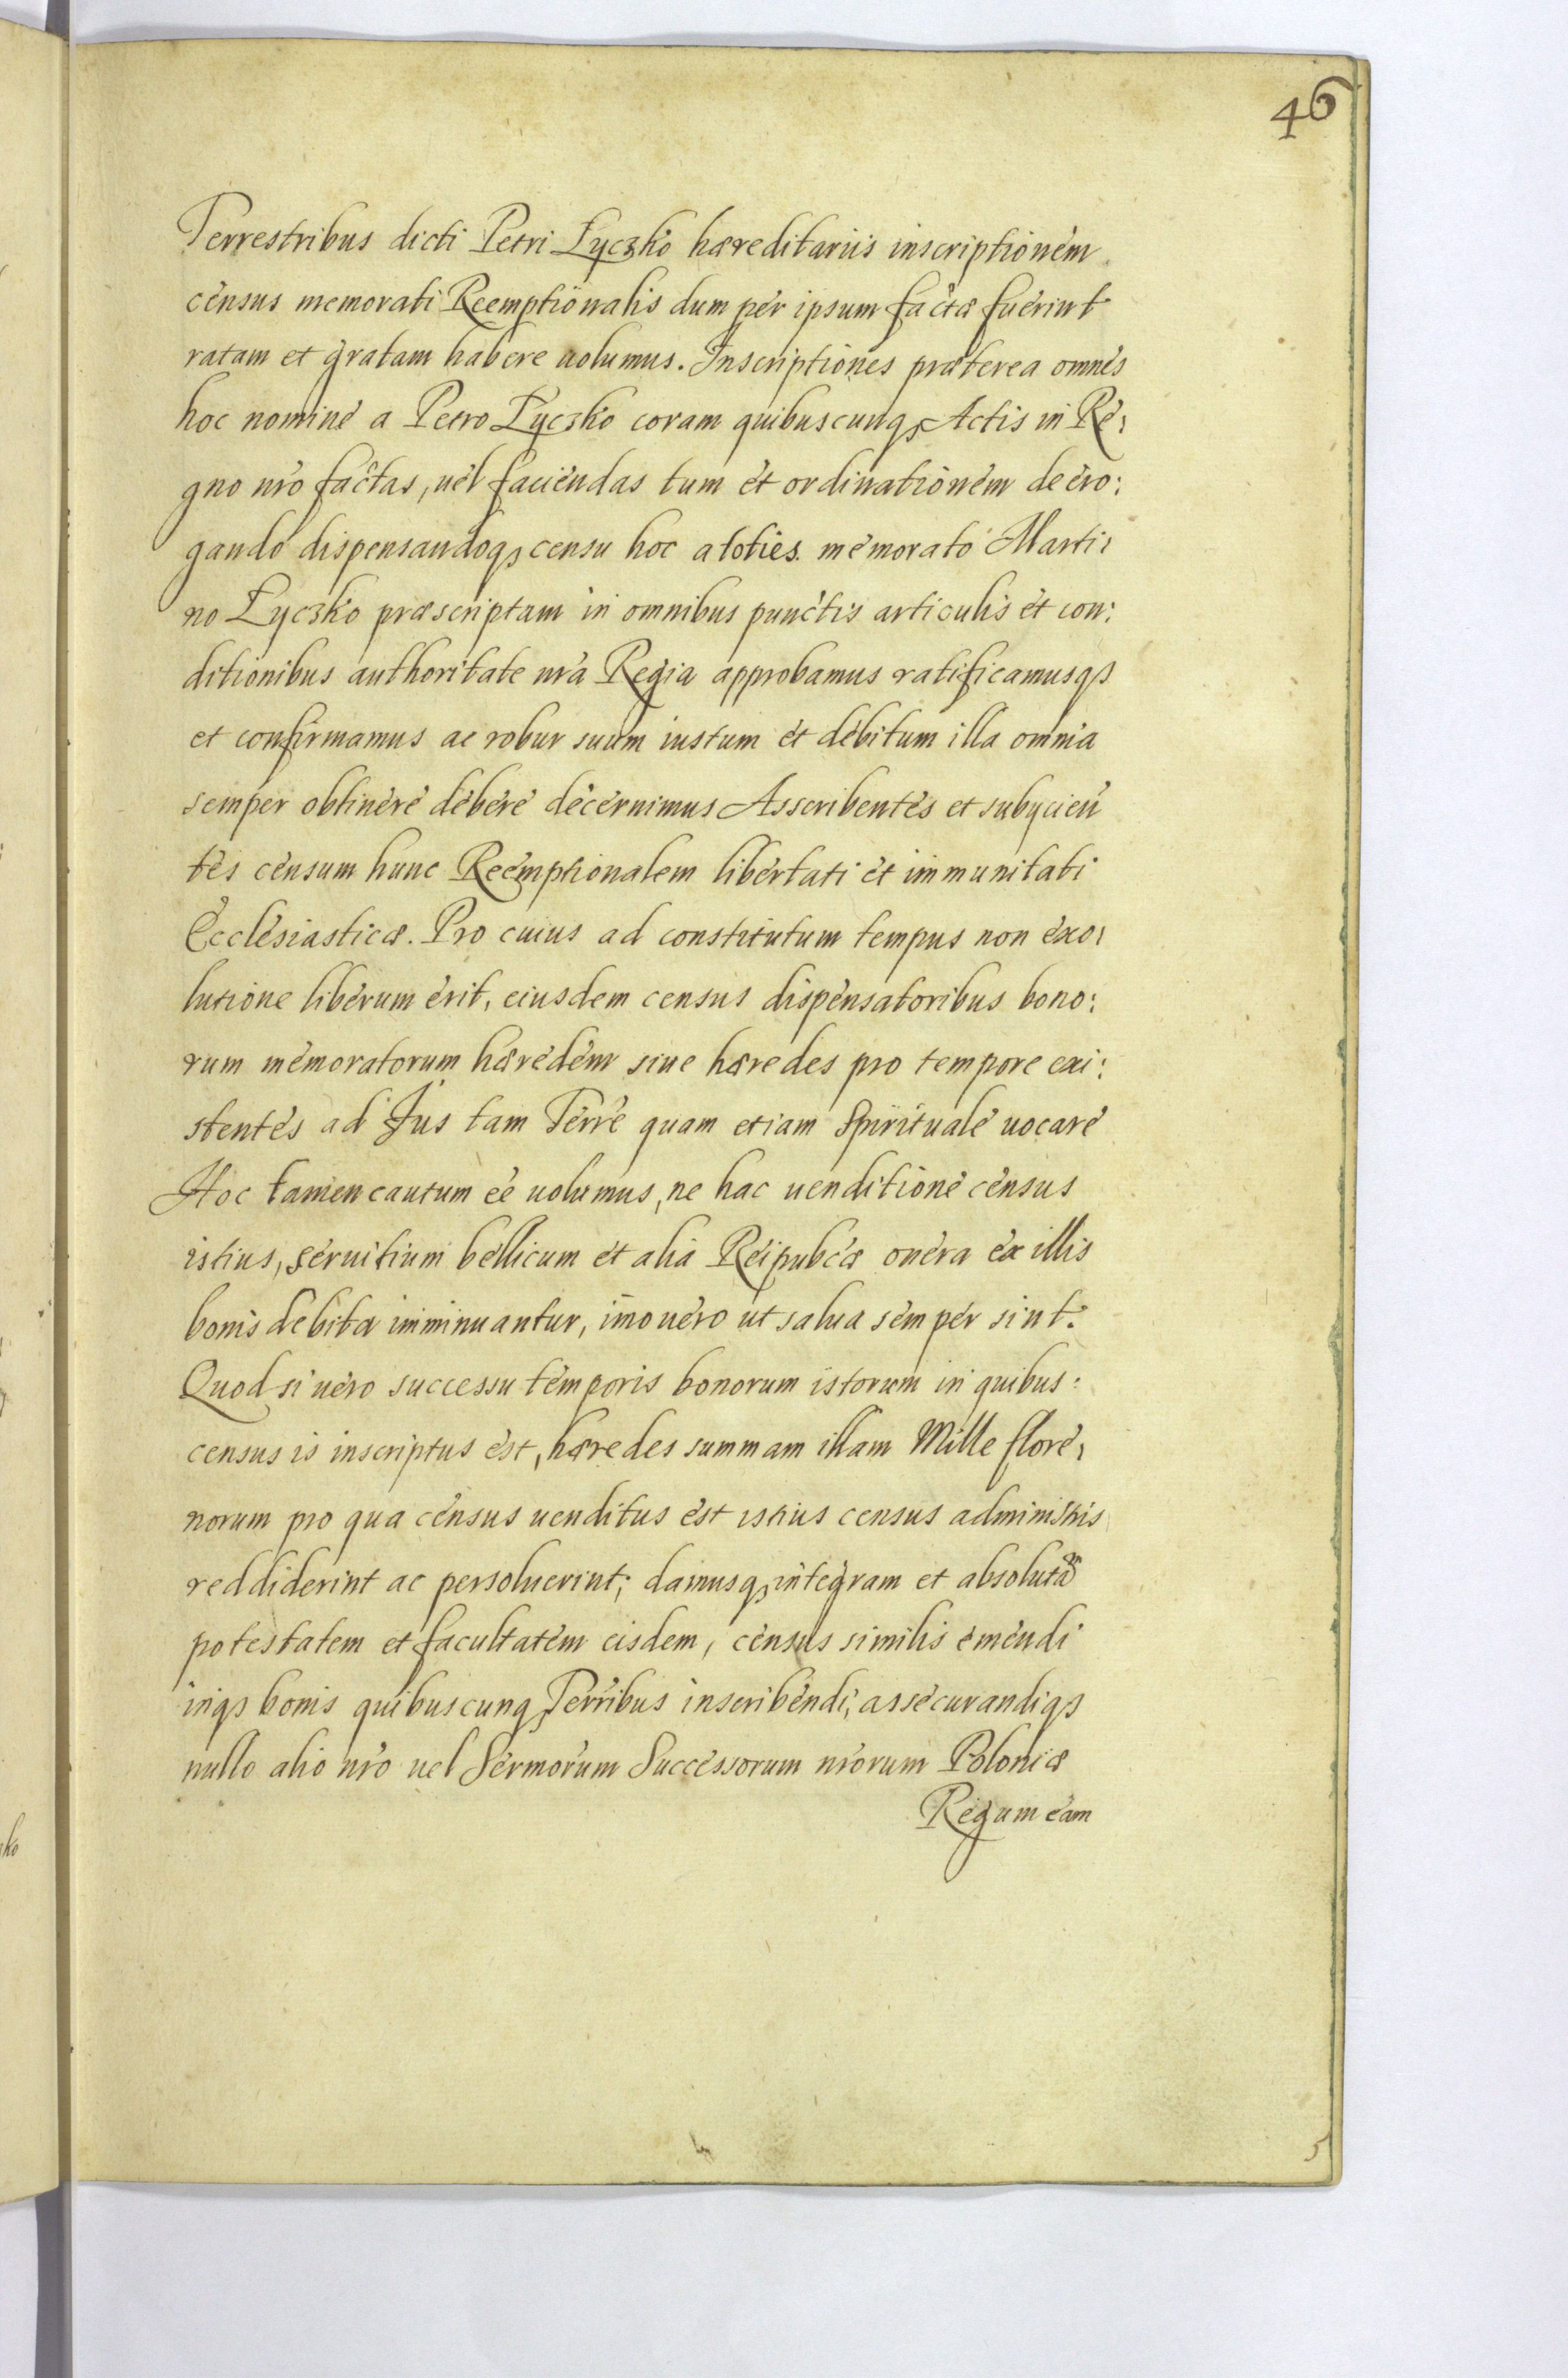 46
Terrestribus dicti Petri Łyczko hæreditariis inscriptionem
census memorati Reemptionalis dum per ipsum factæ fuerint
ratam et gratam habere uolumus. Inscriptiones præterea omnes
hoc nomine a Petro Łyczko coram quibuscunqꝫ Actis in Re:
gno nr̃o factas, uel faciendas tum et ordinationem de ero:
gando dispensandoqꝫ censu hoc a toties memorato Marti:
no Łyczko præscriptam in omnibus punctis articulis et con:
ditionibus authoritate nr̃a Regia approbamus ratificamusqꝫ
et confirmamus ac robur suum iustum et debitum illa omnia
semper obtinere debere decernimus Asscribentes et subycien̄
tes censum hunc Reemptionalem libertati et immunitati
Ecclesiasticæ. Pro cuius ad constitutum tempus non exo:
lutione liberum erit, eiusdem census dispensatoribus bono:
rum memoratorum hæredem siue hæredes pro tempore exi:
stentes ad Jus tam Terr̃e quam etiam Spirituale uocare
Hoc tamen cautum ee̾ uolumus, ne hac uenditione census
istius, seruitium bellicum et alia Reipubcæ onera ex illis
bonis debita imminuantur, im̃o uero ut salua semper sint.
Quod si uero successu temporis bonorum istorum in quibus:
census is inscriptus est, hæredes summam illam Mille flore:
norum pro qua census uenditus est istius census administris
reddiderint ac persoluerint; damusqꝫ integram et absolutã
potestatem et facultatem eisdem, census similis emendi
inqꝫ bonis quibuscunqꝫ Terr̃ibus inscribendi, assecurandiqꝫ
nullo alio nr̃o uel Sermorum Successorum nr̃orum Poloniæ
Regum eam
5